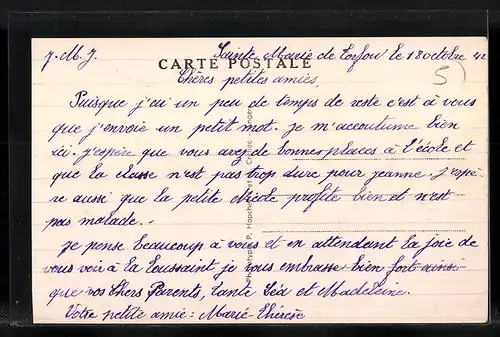 J. M. J. Sainte Marie de Torfou le 18 octobre 42
CARTE POSTALE
5
Chères petites amies,
Puisque j'ai un peu de temps de reste c'est à vous
que j'envoie un petit mot. Je m'accoutume bien
ici. j'espère que vous avez de bonnes places à l'école et
que la classe n'est pas trop dure pour jeanne. J'espè-
re aussi que la petite Nicole profite bien et n'est
pas malade. -
Je pense beaucoup à vous et en attendant la joie de
vous voir à la Toussaint je vous embrasse bien fort ainsi
que vos Chers Parents, tante Léa et Madeleine.
Votre petite amie : Marie-Thérèse